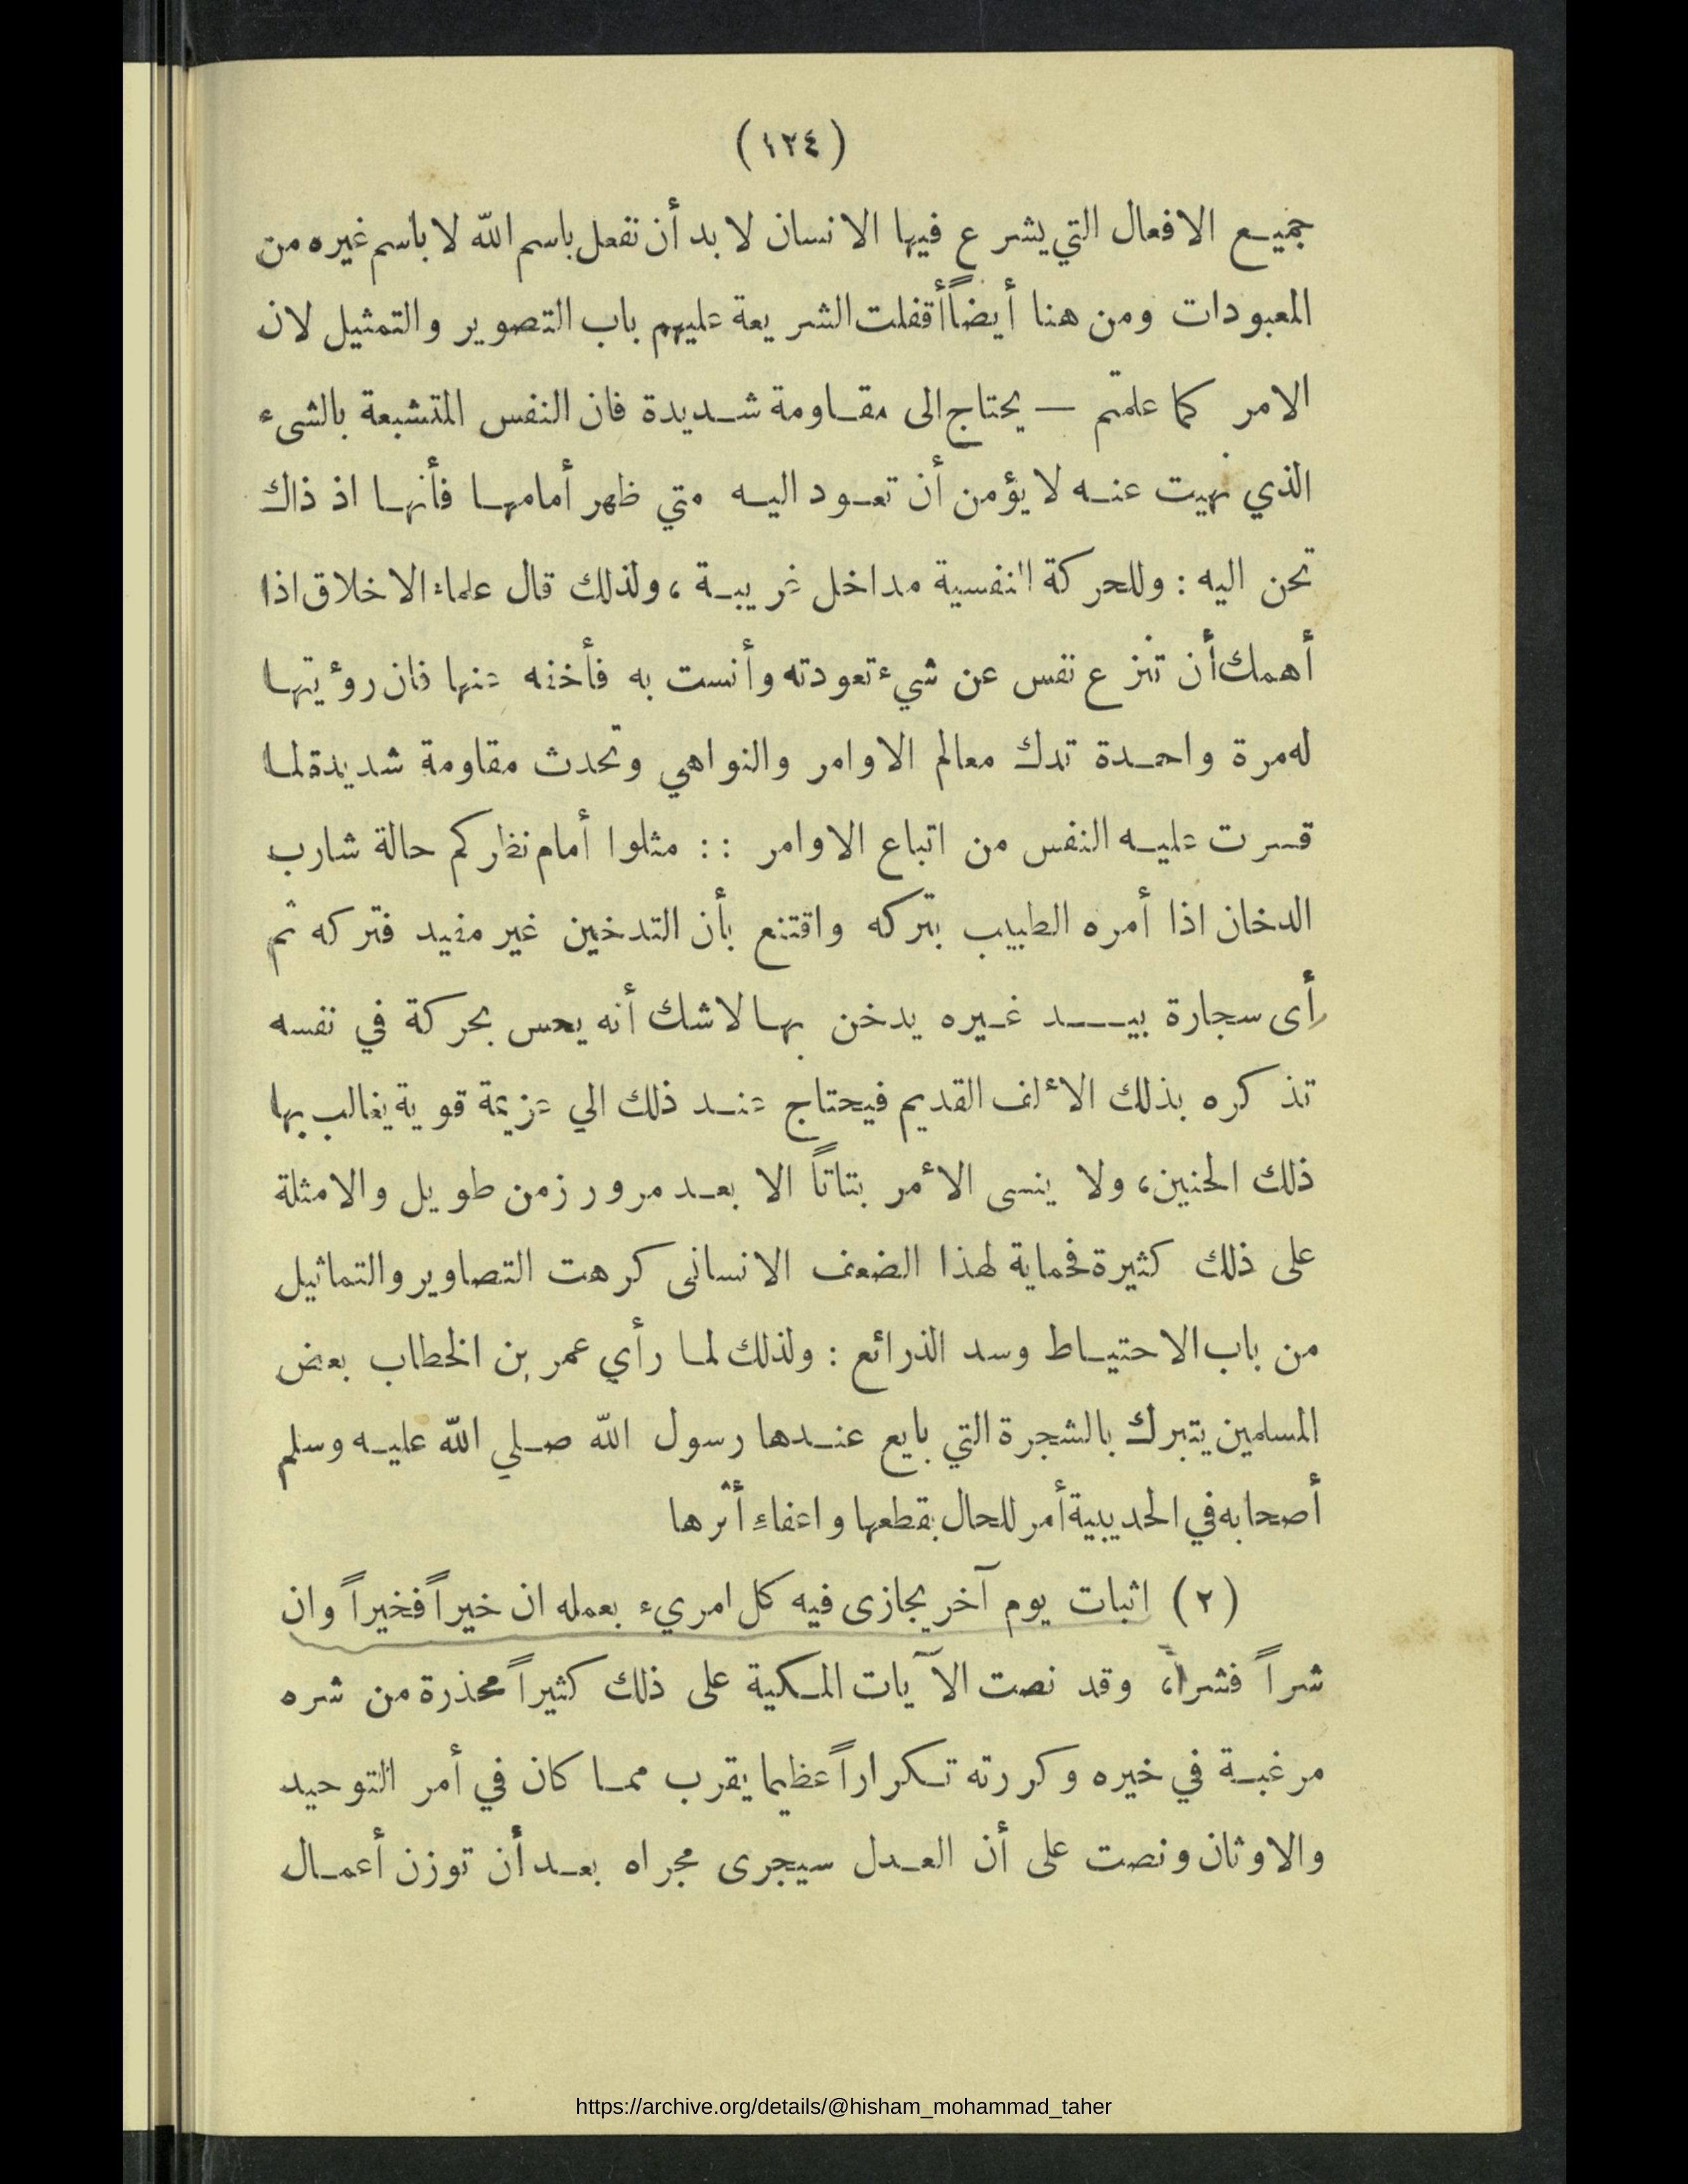 (١٢٤)
جميع الافعال التي يشرع فيها الانسان لا بد أن تفعل باسم الله لا باسم غيره من
المعبودات ومن هنا أيضاً أقفلت الشريعة عليهم باب التصوير والتمثيل لان
الامر كما علمتم — يحتاج الى مقاومة شديدة فان النفس المتشبعة بالشىء
الذي نهيت عنه لا يؤمن أن تعود اليه متي ظهر أمامها فأنها اذ ذاك
تحن اليه : وللحركة النفسية مداخل غريبة ، ولذلك قال علماء الاخلاق اذا
أهمك أن تنزع نفس عن شيء تعودته وأنست به فأخفه عنها فان رؤيتها
له مرة واحدة تدك معالم الاوامر والنواهي وتحدث مقاومة شديدة لما
قسرت عليه النفس من اتباع الاوامر : : مثلوا أمام نظركم حالة شارب
الدخان اذا أمره الطبيب بتركه واقتنع بأن التدخين غير مفيد فتركه ثم
رأى سجارة بيد غيره يدخن بها لاشك أنه يحس بحركة في نفسه
تذكره بذلك الألف القديم فيحتاج عند ذلك الي عزيمة قوية يغالب بها
ذلك الحنين، ولا ينسى الأمر بتاتاً الا بعد مرور زمن طويل والامثلة
على ذلك كثيرة فحماية لهذا الضعف الانسانى كرهت التصاوير والتماثيل
من باب الاحتياط وسد الذرائع : ولذلك لما رأي عمر بن الخطاب بعض
المسلمين يتبرك بالشجرة التي بايع عندها رسول الله صلي الله عليه وسلم
أصحابه في الحديبية أمر للحال بقطعها واعفاء أثرها
(٢) اثبات يوم آخر يجازى فيه كل امريء بعمله ان خيراً فخيراً وان
شراً فشراً، وقد نصت الآيات المكية على ذلك كثيراً محذرة من شره
مرغبة في خيره وكررته تكراراً عظيما يقرب مما كان في أمر التوحيد
والاوثان ونصت على أن العدل سيجرى مجراه بعد أن توزن أعمال
https://archive.org/details/@hisham_mohammad_taher